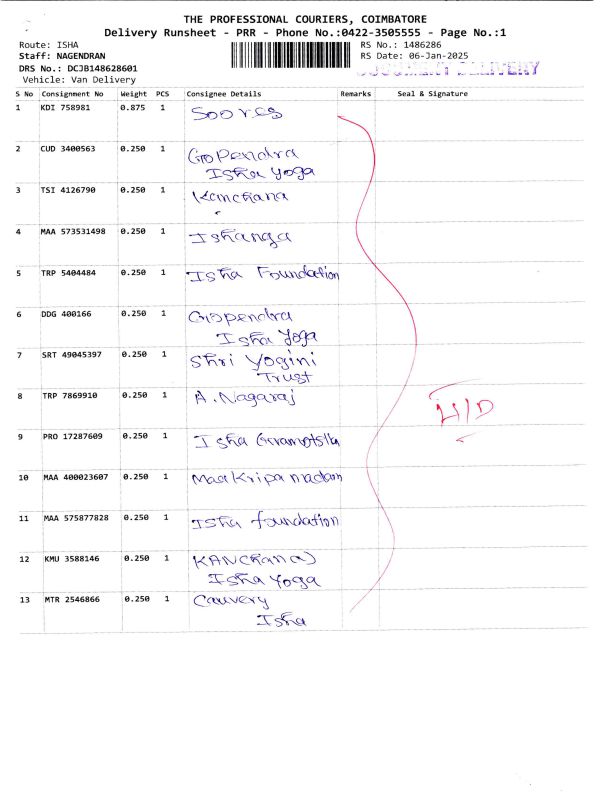 THE PROFESSIONAL COURIERS, COIMBATORE
Delivery Runsheet - PRR - Phone No.:0422-3505555 - Page No.:1
Route: ISHA
RS No.: 1486286
Staff: NAGENDRAN
RS Date: 06-Jan-2025
DRS No.: DCJB148628601
DOCUMENT DELIVERY
Vehicle: Van Delivery
S No Consignment No Weight PCS Consignee Details Remarks Seal & Signature
1 KDI 758981 0.875 1 Soores
2 CUD 3400563 0.250 1 Gopendra
Isha Yoga
3 TSI 4126790 0.250 1 Kanchana
4 MAA 573531498 0.250 1 Ishanga
5 TRP 5404484 0.250 1 Isha Foundation
6 DDG 400166 0.250 1 Gopendra
Isha Yoga
7 SRT 49045397 0.250 1 Shri Yogini
Trust
8 TRP 7869910 0.250 1 A. Nagaraj
H/D
9 PRO 17287609 0.250 1 Isha
10 MAA 400023607 0.250 1 Maa Kripa madam
11 MAA 575877828 0.250 1 Isha foundation
12 KMU 3588146 0.250 1 KANchana
Isha Yoga
13 MTR 2546866 0.250 1 Cauvery
Isha